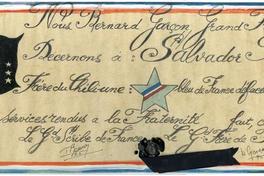 Nous Bernard Garçon Grand P
Décernons à : Salvador
Frère du Chili une bleu de France d'efface
services rendus à la Fraternité fait
Le Gd Scribe de France Le Gd Frère de